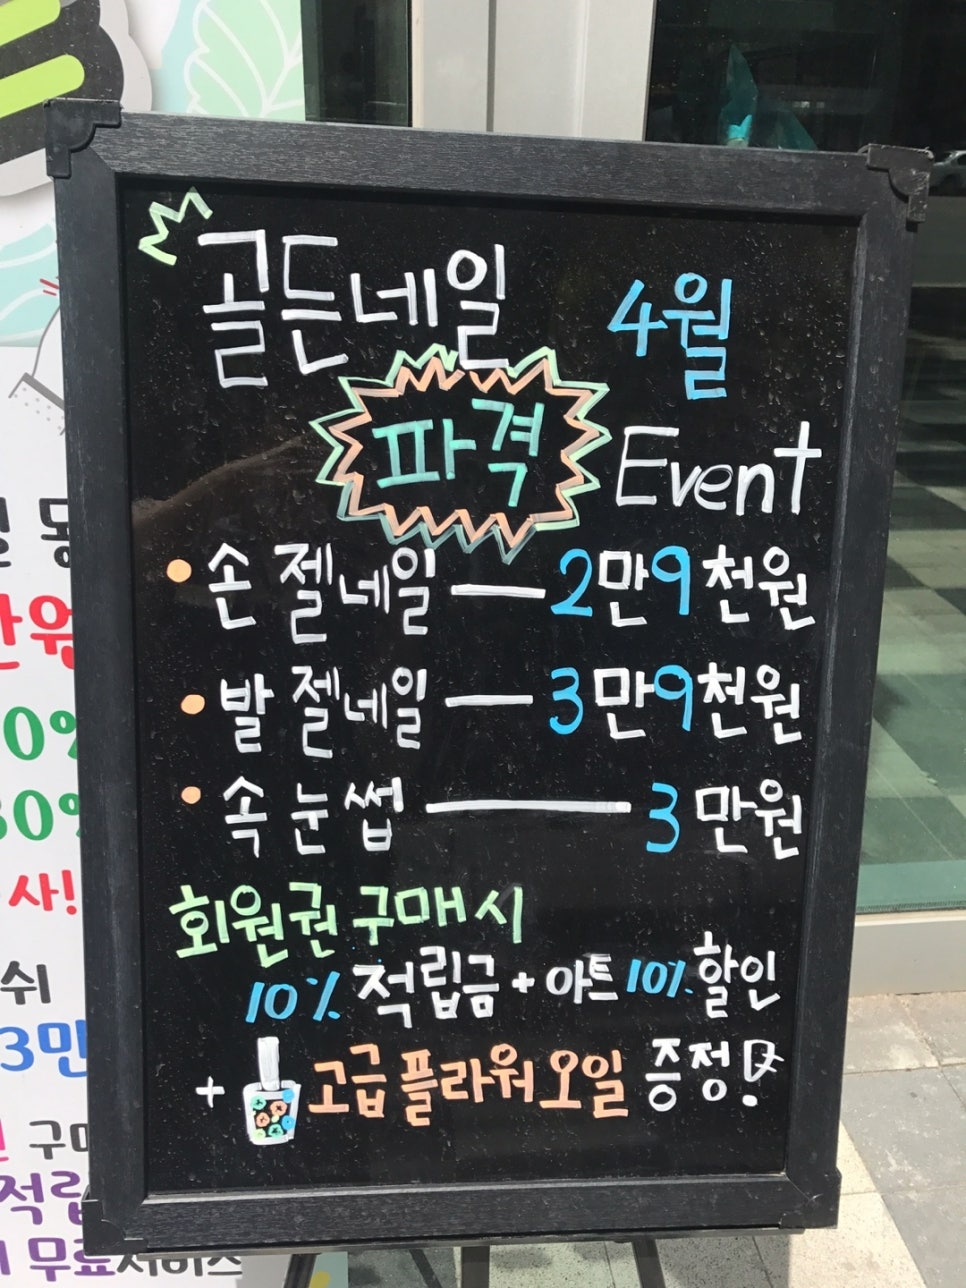 골든네일
4월
파격
Event
손 젤네일 — 2만9천원
발 젤네일 — 3만9천원
속눈썹 — 3만원
회원권 구매시
10% 적립금 + 아트 10% 할인
+ 고급 플라워 오일 증정!
동
만원
0%
30%
사!
쉬
3만
구매
적립
무료서비스